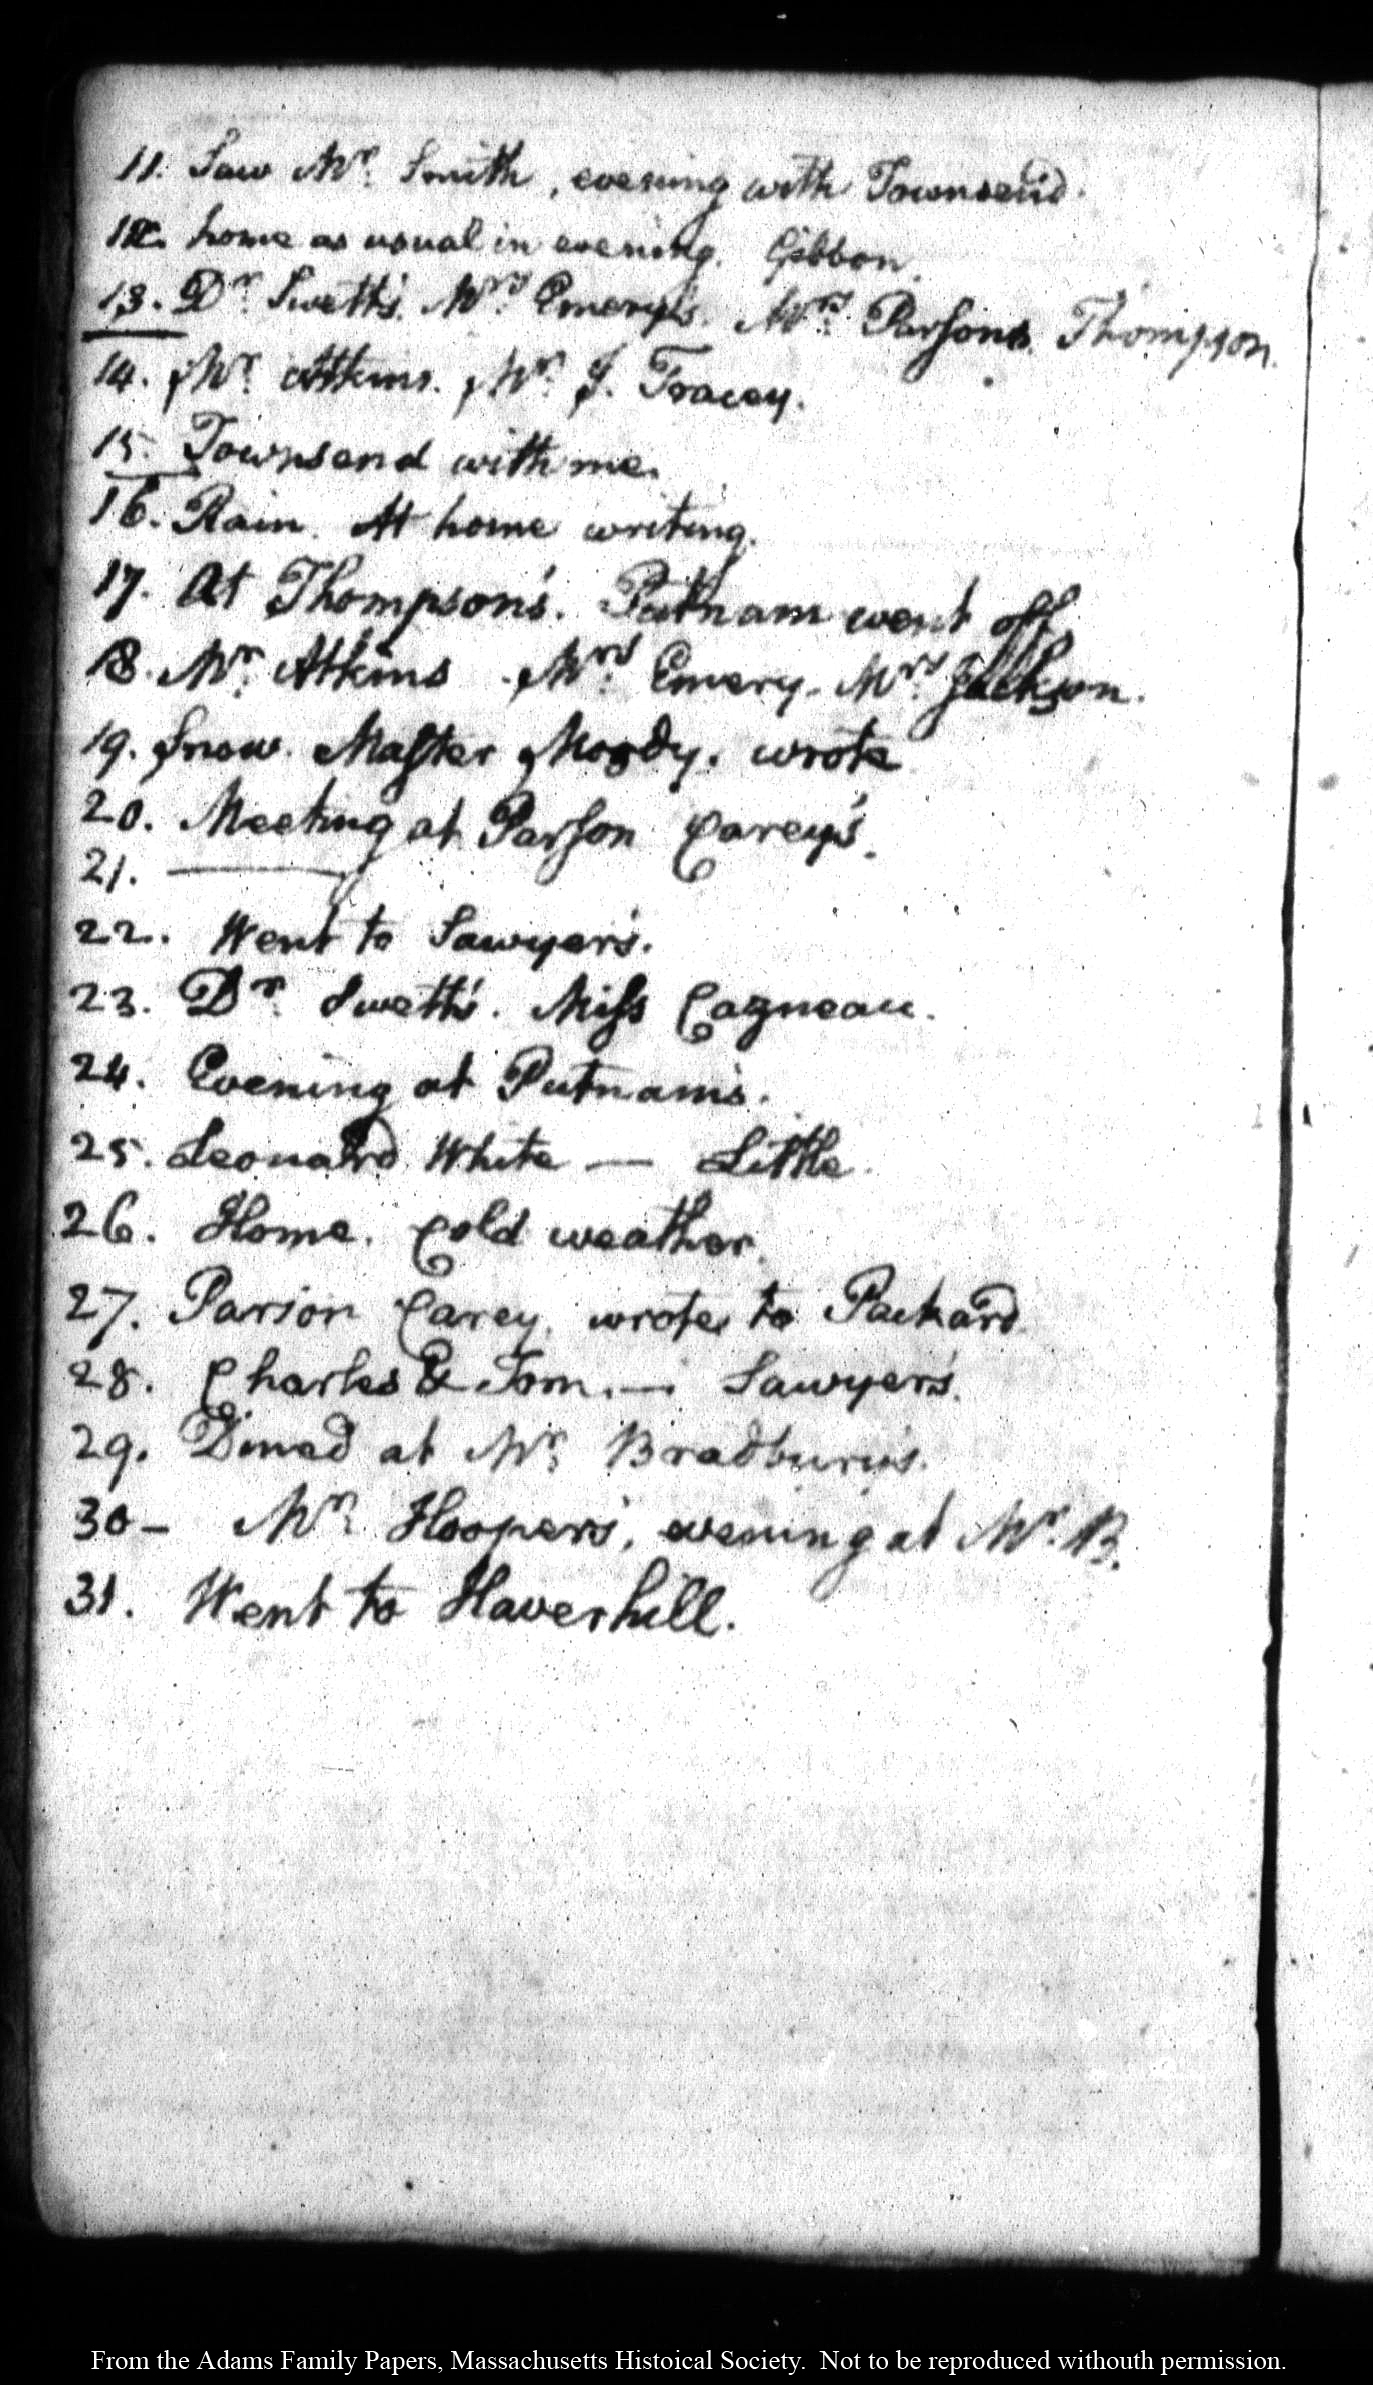 11. Saw Mr. Smith, evening with Townsend.
12. home as usual in evening. Gibbon.
13. Dr. Swett's. Mrs. Emery's. Mrs. Parsons. Thompson.
14. Mr. Atkins. Mr. J. Tracey.
15. Townsend with me.
16. Rain. At home writing.
17. At Thompson's. Putnam went off.
18. Mr. Atkins. Mrs. Emery. Mrs. Jackson.
19. Snow. Master Moody. wrote
20. Meeting at Parson Carey's.
21. ———
22. Went to Sawyer's.
23. Dr. Swett's. Miss Cazneau.
24. Evening at Putnam's.
25. Leonard White — Little.
26. Home. Cold weather.
27. Parson Carey. wrote to Packard.
28. Charles & Tom. — Sawyer's.
29. Dined at Mr. Bradbury's.
30 — Mr. Hooper's, evening at Mr. B.
31. Went to Haverhill.
From the Adams Family Papers, Massachusetts Histoical Society.  Not to be reproduced withouth permission.